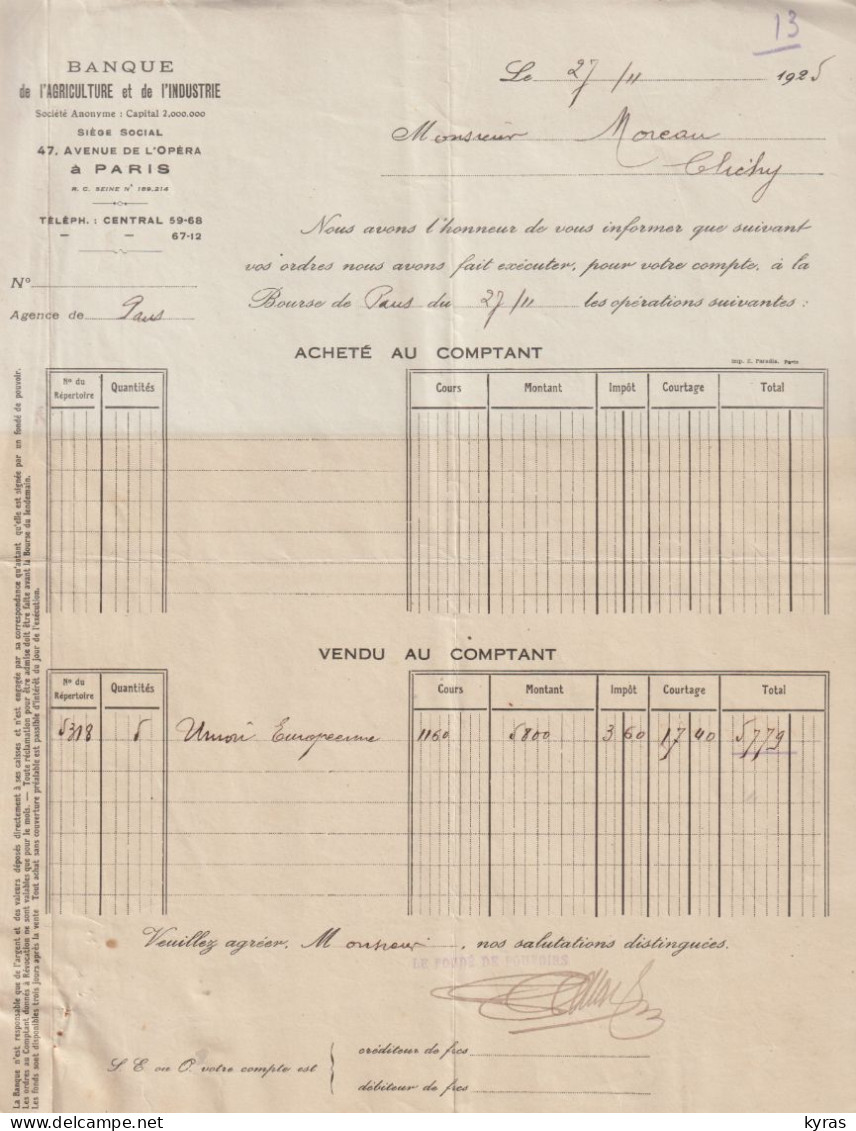 13
BANQUE
de l'AGRICULTURE et de l'INDUSTRIE
Société Anonyme : Capital 2,000.000
SIÈGE SOCIAL
47, AVENUE DE L'OPÉRA
à PARIS
R. C. SEINE N° 189,214
TÉLÉPH. : CENTRAL 59-68
— — 67-12
N°
Agence de Paris
Le 27/11 1925
Monsieur Moreau
Clichy
Nous avons l'honneur de vous informer que suivant
vos ordres nous avons fait exécuter, pour votre compte, à la
Bourse de Paris du 27/11 les opérations suivantes :
ACHETÉ AU COMPTANT
Imp. E. Paradis, Paris
Nos du Répertoire Quantités Cours Montant Impôt Courtage Total
VENDU AU COMPTANT
Nos du Répertoire Quantités Cours Montant Impôt Courtage Total
5318 5 Union Européenne 1160 5800 3 60 17 40 5779
Veuillez agréer, Monsieur, nos salutations distinguées.
LE FONDÉ DE POUVOIRS
S. E. ou O. votre compte est
créditeur de frcs
débiteur de frcs
La Banque n'est responsable que de l'argent et des valeurs déposés directement à ses caisses et n'est engagée par sa correspondance qu'autant qu'elle est signée par un fondé de pouvoir.
Les ordres au Comptant donnés à Révocation ne sont valables que pour le mois. — Toute réclamation pour être admise doit être faite avant la Bourse du lendemain.
Les fonds sont disponibles trois jours après la vente Tout achat sans couverture préalable est passible d'intérêt du jour de l'exécution.
kyras